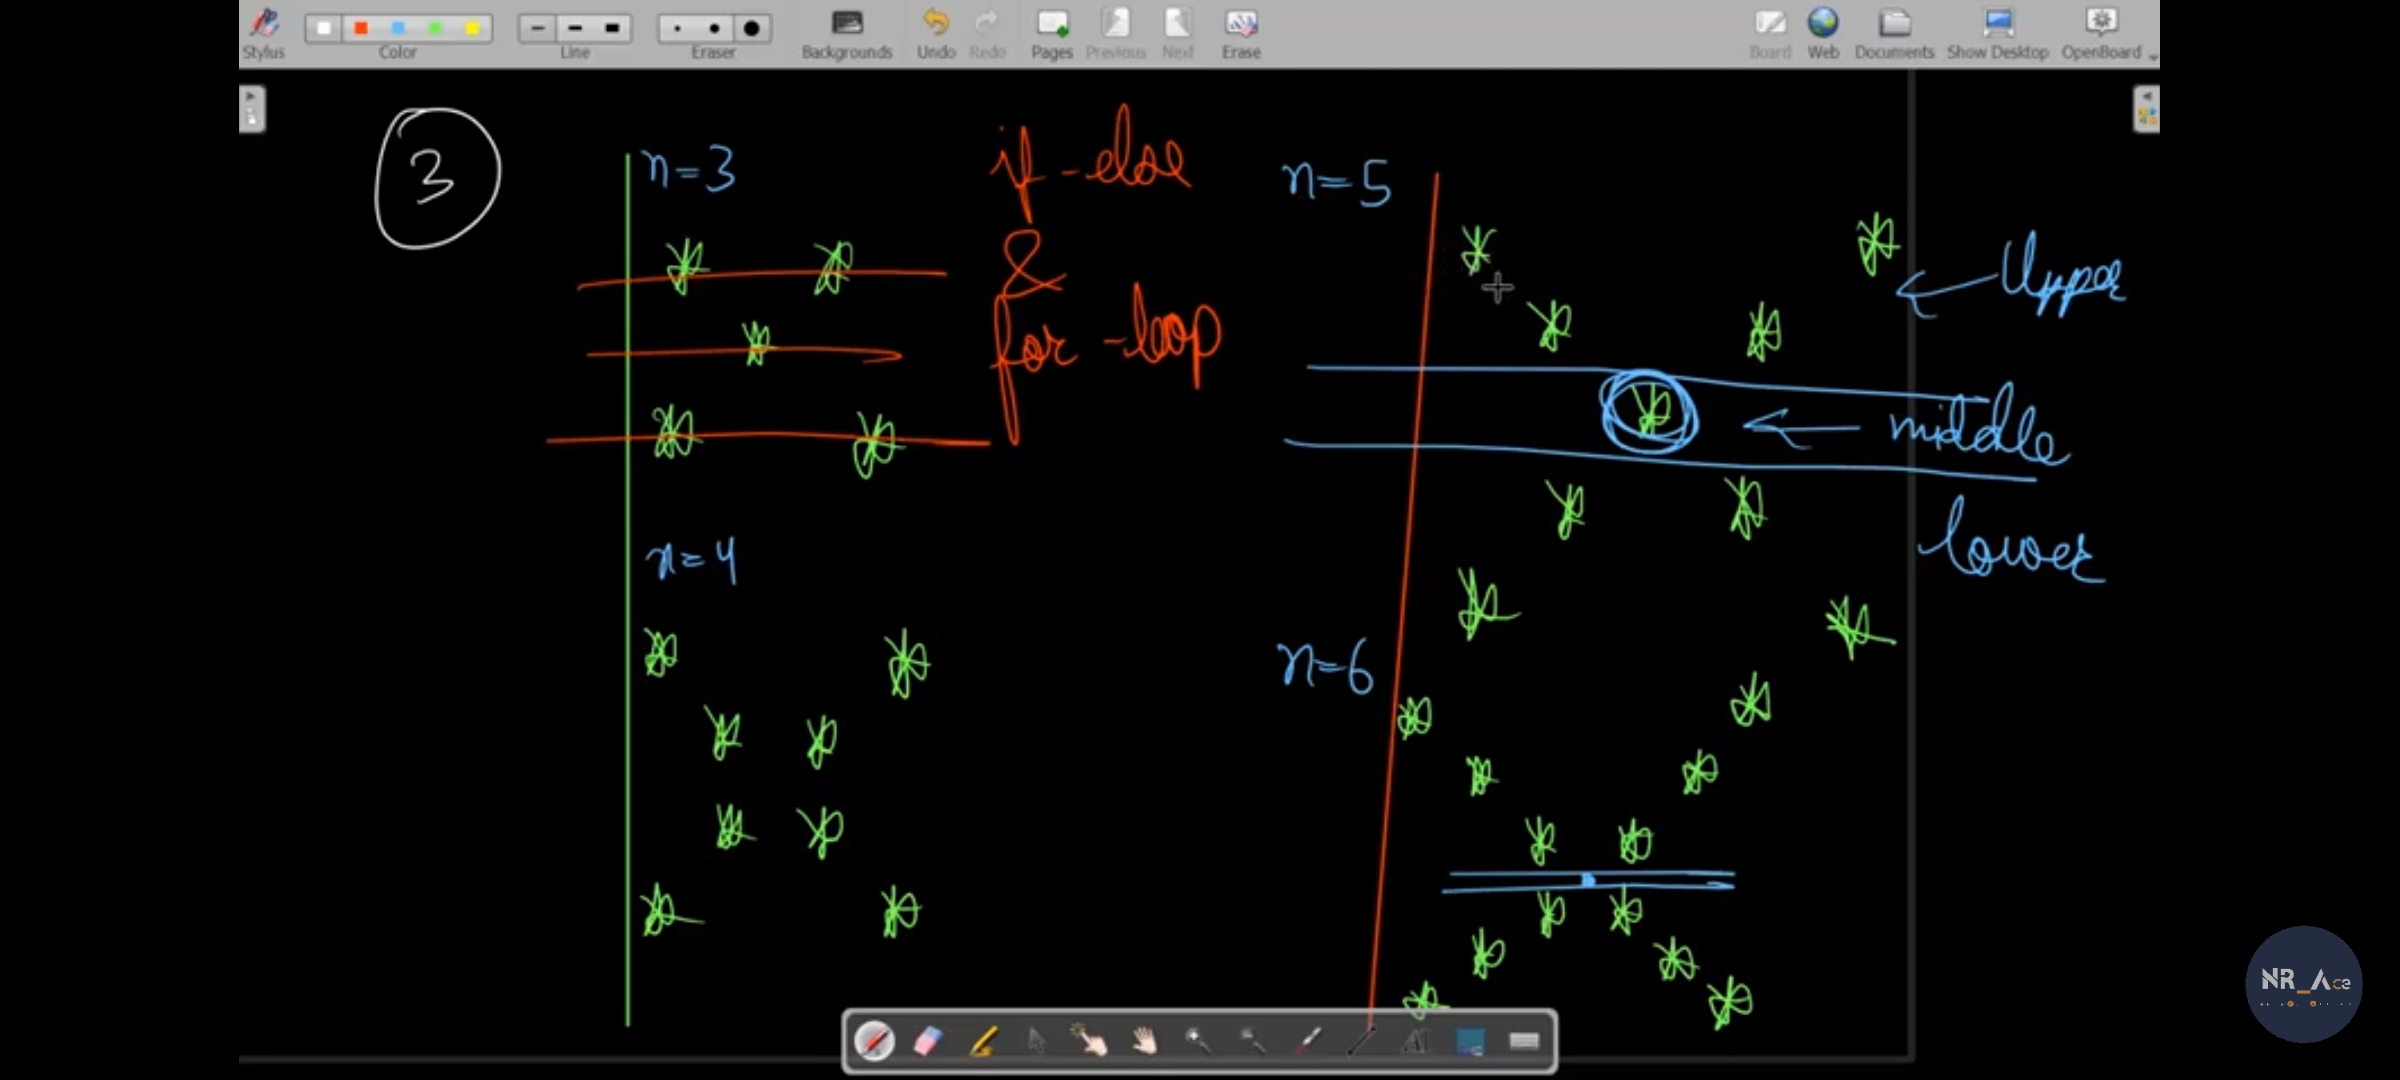 Stylus
Color
Line
Eraser
Backgrounds
Undo
Redo
Pages
Previous
Next
Erase
Board
Web
Documents
Show Desktop
OpenBoard
3
n=3
if-else
&
for-loop
n=5
Upper
middle
lower
n=4
n=6
NR_Ace